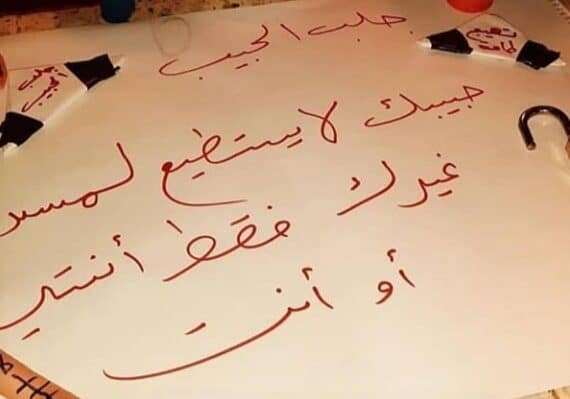 جلب الحبيب
حبيبك لا يستطيع لمس
غيرك فقط أنتي
أو أنت
جلب
الحبيب